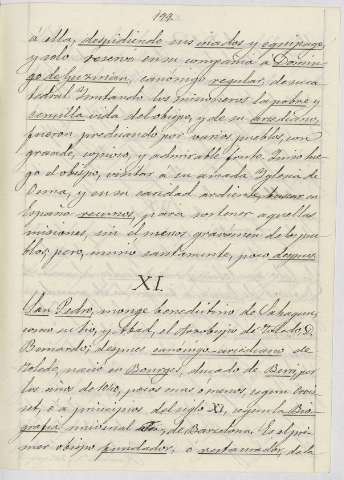 199.
á ella, despidiendo sus criados y equipage,
y solo reservó en su compañia á Domin-
go de Guzman, canónigo reglar, de su ca-
tedral. Imitando los misioneros la pobre y
sencilla vida del obispo, y de su arcediano,
fueron predicando por varios pueblos con
grande, copioso, y admirable fruto. Quiso lue-
go el obispo, visitar á su amada Yglesia de
Osma, y en su caridad ardiente, buscar en
España recursos, para sostener aquellas
misiones, sin el menor gravamen de los pue-
blos; pero, murió santamente, poco despues.
XI.
San Pedro, monge benedictino de Sahagun,
como su tio, y Abad, el Arzobispo de Toledo D.
Bernardo; despues canonigo-arcediano de
Toledo, nació en Bourges, ducado de Berri, por
los años de 1040, pocos mas ó menos, segun Croi-
set, ó á principios del siglo XI, segun la Bio-
grafia universal de Barcelona. Es el pri-
mer obispo fundador, ó restaurador, de la